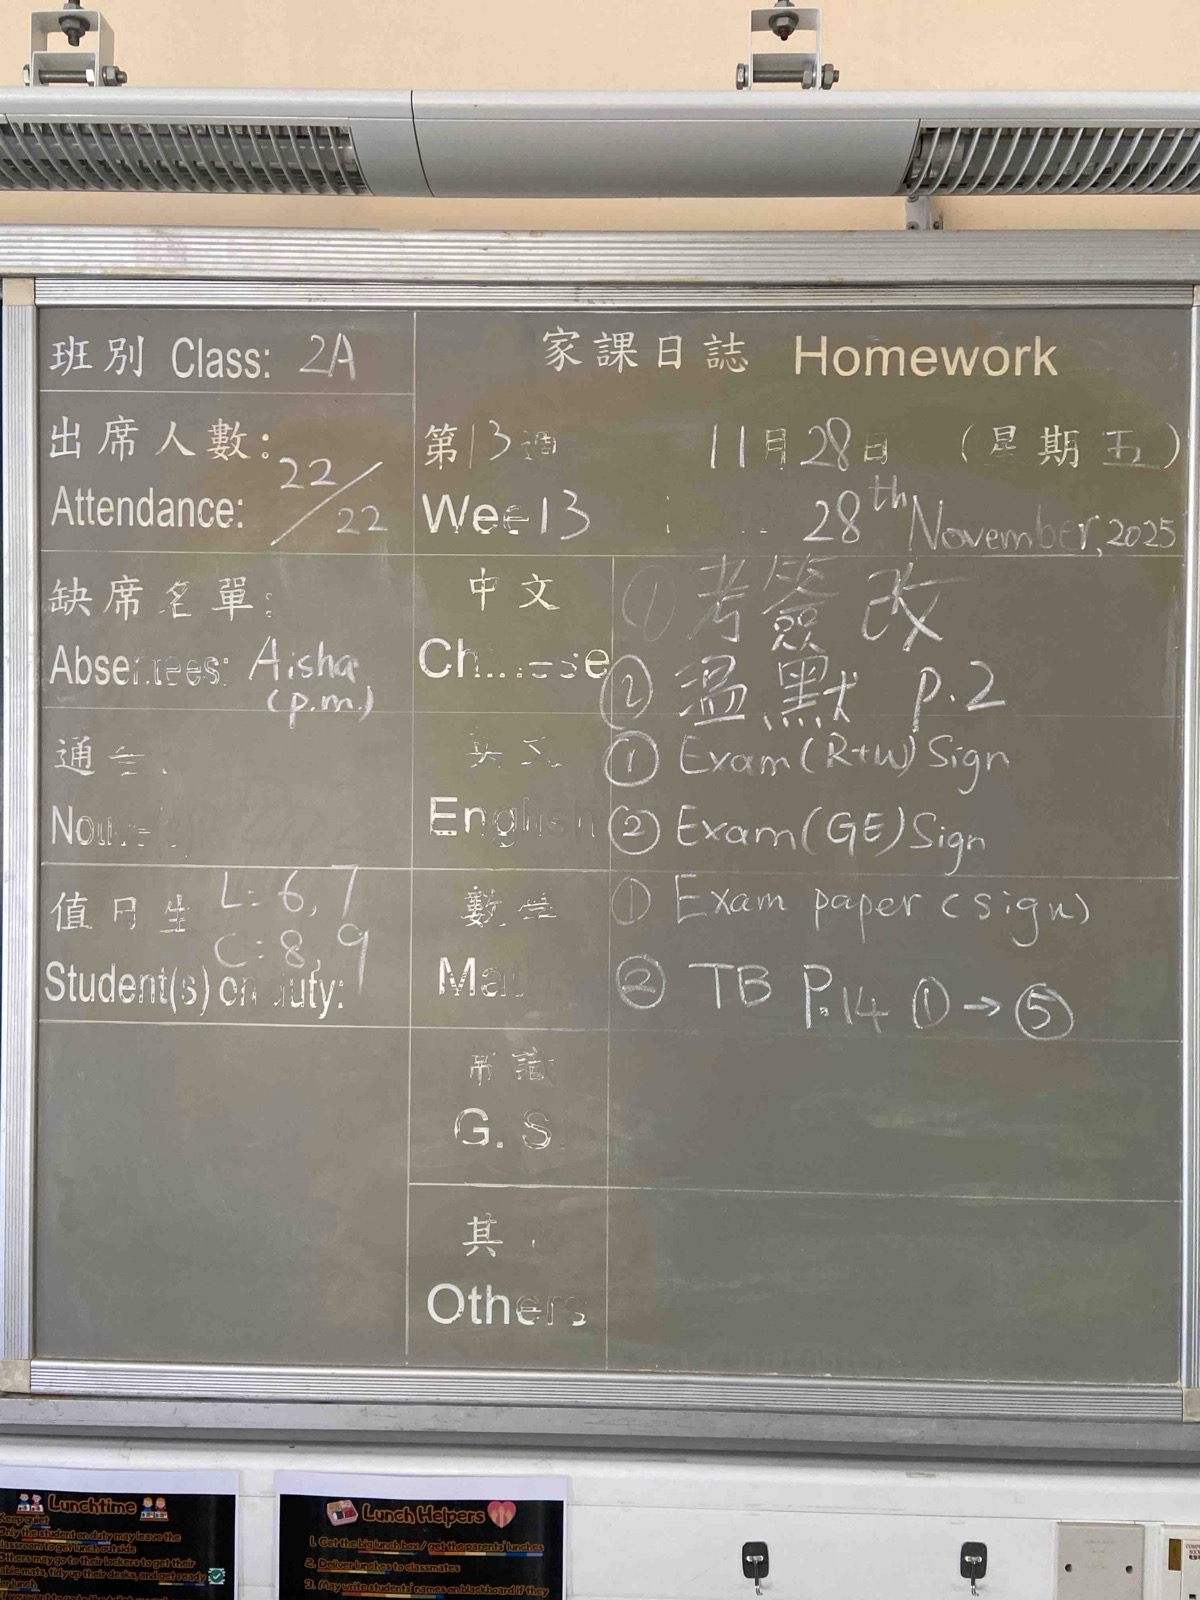 班別 Class: 2A
家課日誌 Homework
出席人數:
Attendance: 22/22
第13週 11月28日 (星期五)
Wee 13 28th November, 2025
缺席名單:
Absentees: Aisha
(p.m.)
中文
Chinese
① 考簽改
② 溫默 p.2
通告
英文
English
① Exam (R+W) Sign
② Exam (GE) Sign
值日生 L: 6, 7
C: 8, 9
Student(s) on duty:
數學
Mat
① Exam paper (sign)
② TB P.14 ① → ⑤
常識
G. S.
其
Others
Lunchtime
Keep quiet
Only the student on duty may leave the
classroom to get lunch outside
Others may go to their lockers to get their
table mats, tidy up their desks, and get ready
for lunch
Lunch Helpers
1. Get the big lunch box / get the parents' lunches
2. Deliver lunches to classmates
3. May write students' names on blackboard if they